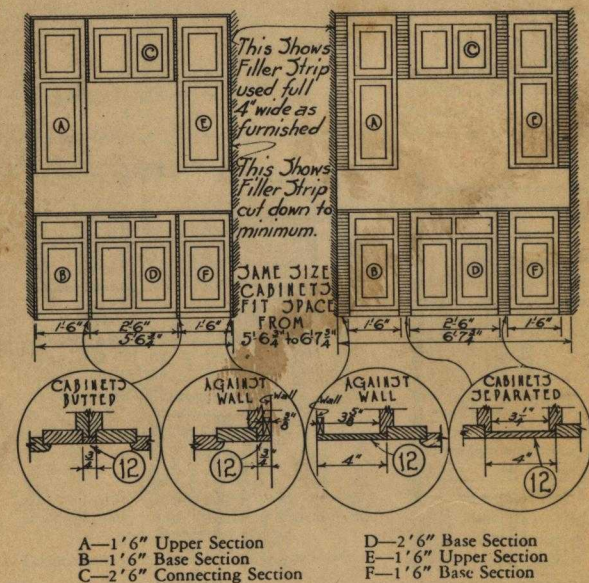 This Shows
Filler Strip
used full
4" wide as
furnished
This Shows
Filler Strip
cut down to
minimum.
SAME SIZE
CABINETS
FIT SPACE
FROM
5'6¾" to 6'7¾"
A
C
E
B
D
F
1'6"
2'6"
1'6"
5'6¾"
A
C
E
B
D
F
1'6"
2'6"
1'6"
6'7¾"
CABINETS
BUTTED
12
AGAINST
WALL
Wall
12
AGAINST
WALL
Wall
3⅝"
4"
12
CABINETS
SEPARATED
3¼"
4"
12
A—1'6" Upper Section
B—1'6" Base Section
C—2'6" Connecting Section
D—2'6" Base Section
E—1'6" Upper Section
F—1'6" Base Section